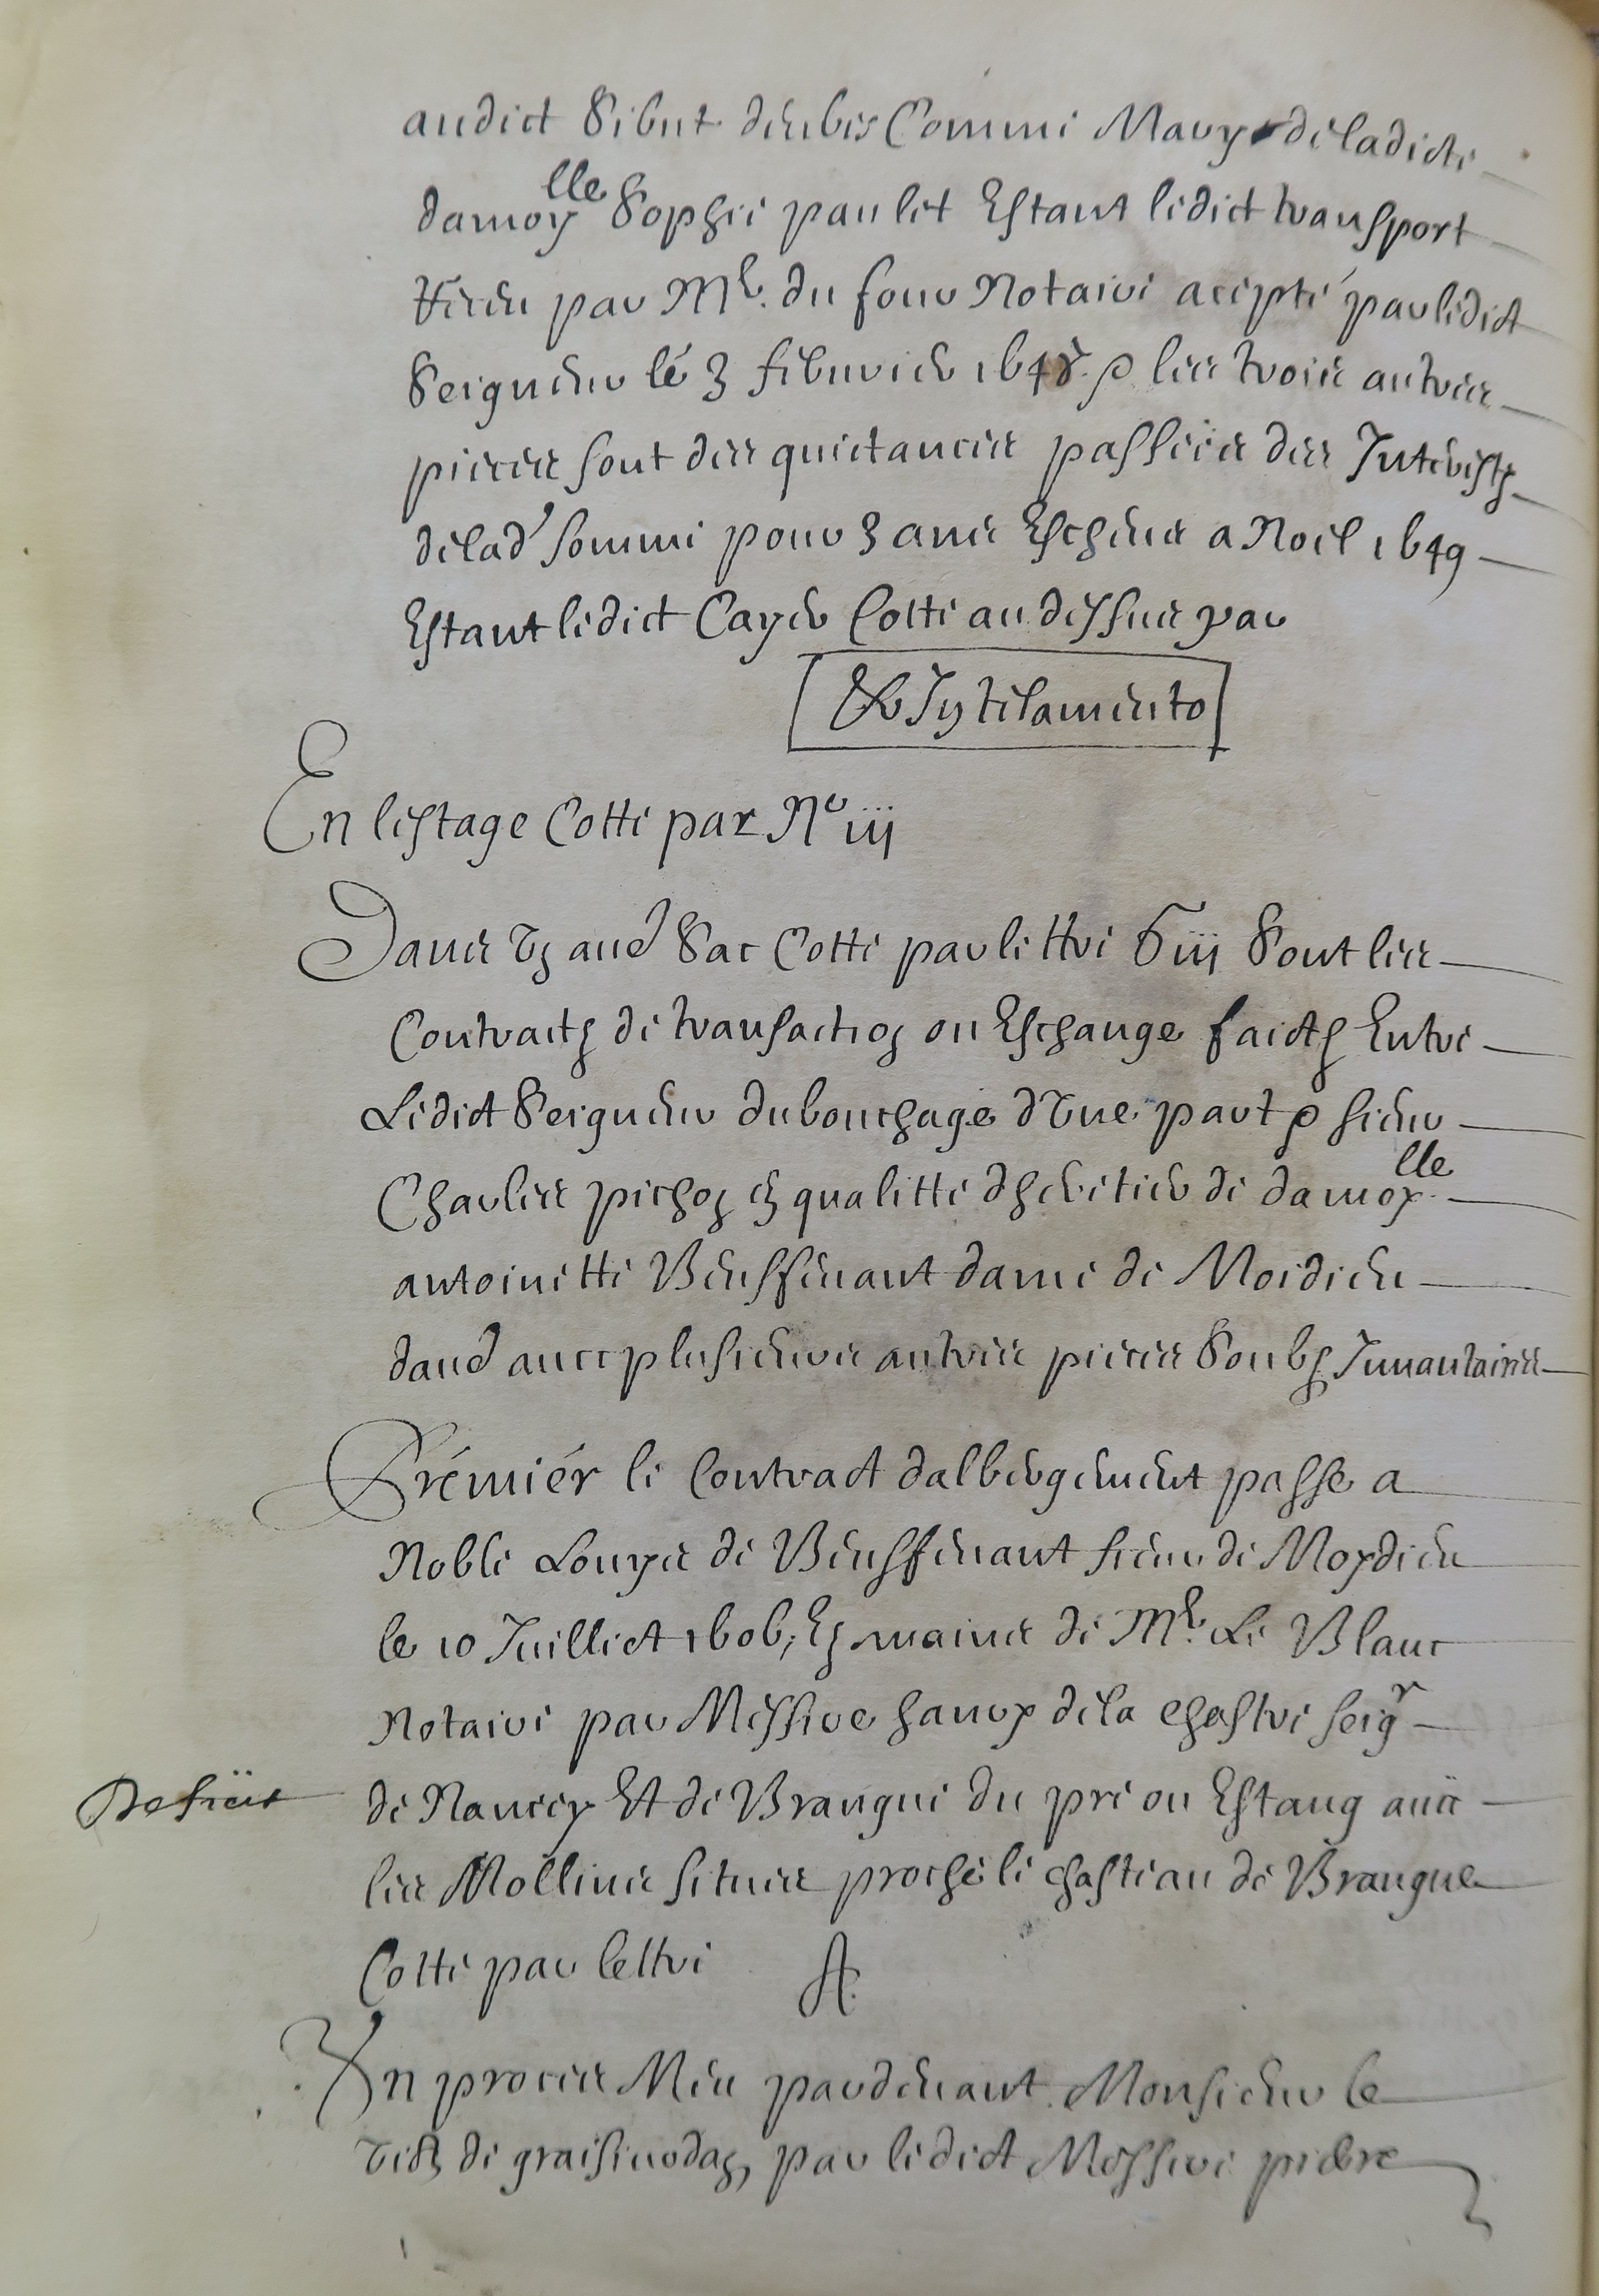 audict Sibut deubes Comme Mary de ladicte
damoy<sup>lle</sup> Sophie paulet Estant ledict transport
Receu par M<sup>e</sup>. du four Notaire accepté par ledict
Seigneur lé 3 febvrier 1648. & les trois autres
pieces sont des quictances passées des Interestz
de lad' somme pour 3 ans Escheus a Noel 1649
Estant ledict Cayer Cotté au dessus par
En lestage Cotté par N<sup>o</sup> iij
Dans Un aud' Sac Cotté par lettre G iij Sont les
Contractz de transaction ou Eschange faictz Entre
Ledict Seigneur du bouchage d'Une part & sieur
Charles pichon en qualitté dheritier de damoy<sup>lle</sup>.
antoinette Beuffevant dame de Moidieu
daud' avec plusieurs autres pieces Soubz Inventaires
Prémiér le Contract dalbergement passe a
Noble Louys de Beuffevant sieur de Moydieu
le 10 Juillet 1606, Es mains de M<sup>e</sup>. Le Blanc
Notaire par Messire hanry de la Chastre seig<sup>r</sup>
de Nancey Et de Brangue du pré ou Estang avec
les Mollins situés proche le chasteau de Brangue
Cotté par lettre A.
Un procès Meu pardevant Monsieur le
Vib<sup></sup> de graisivodan, par ledict Messire pierre